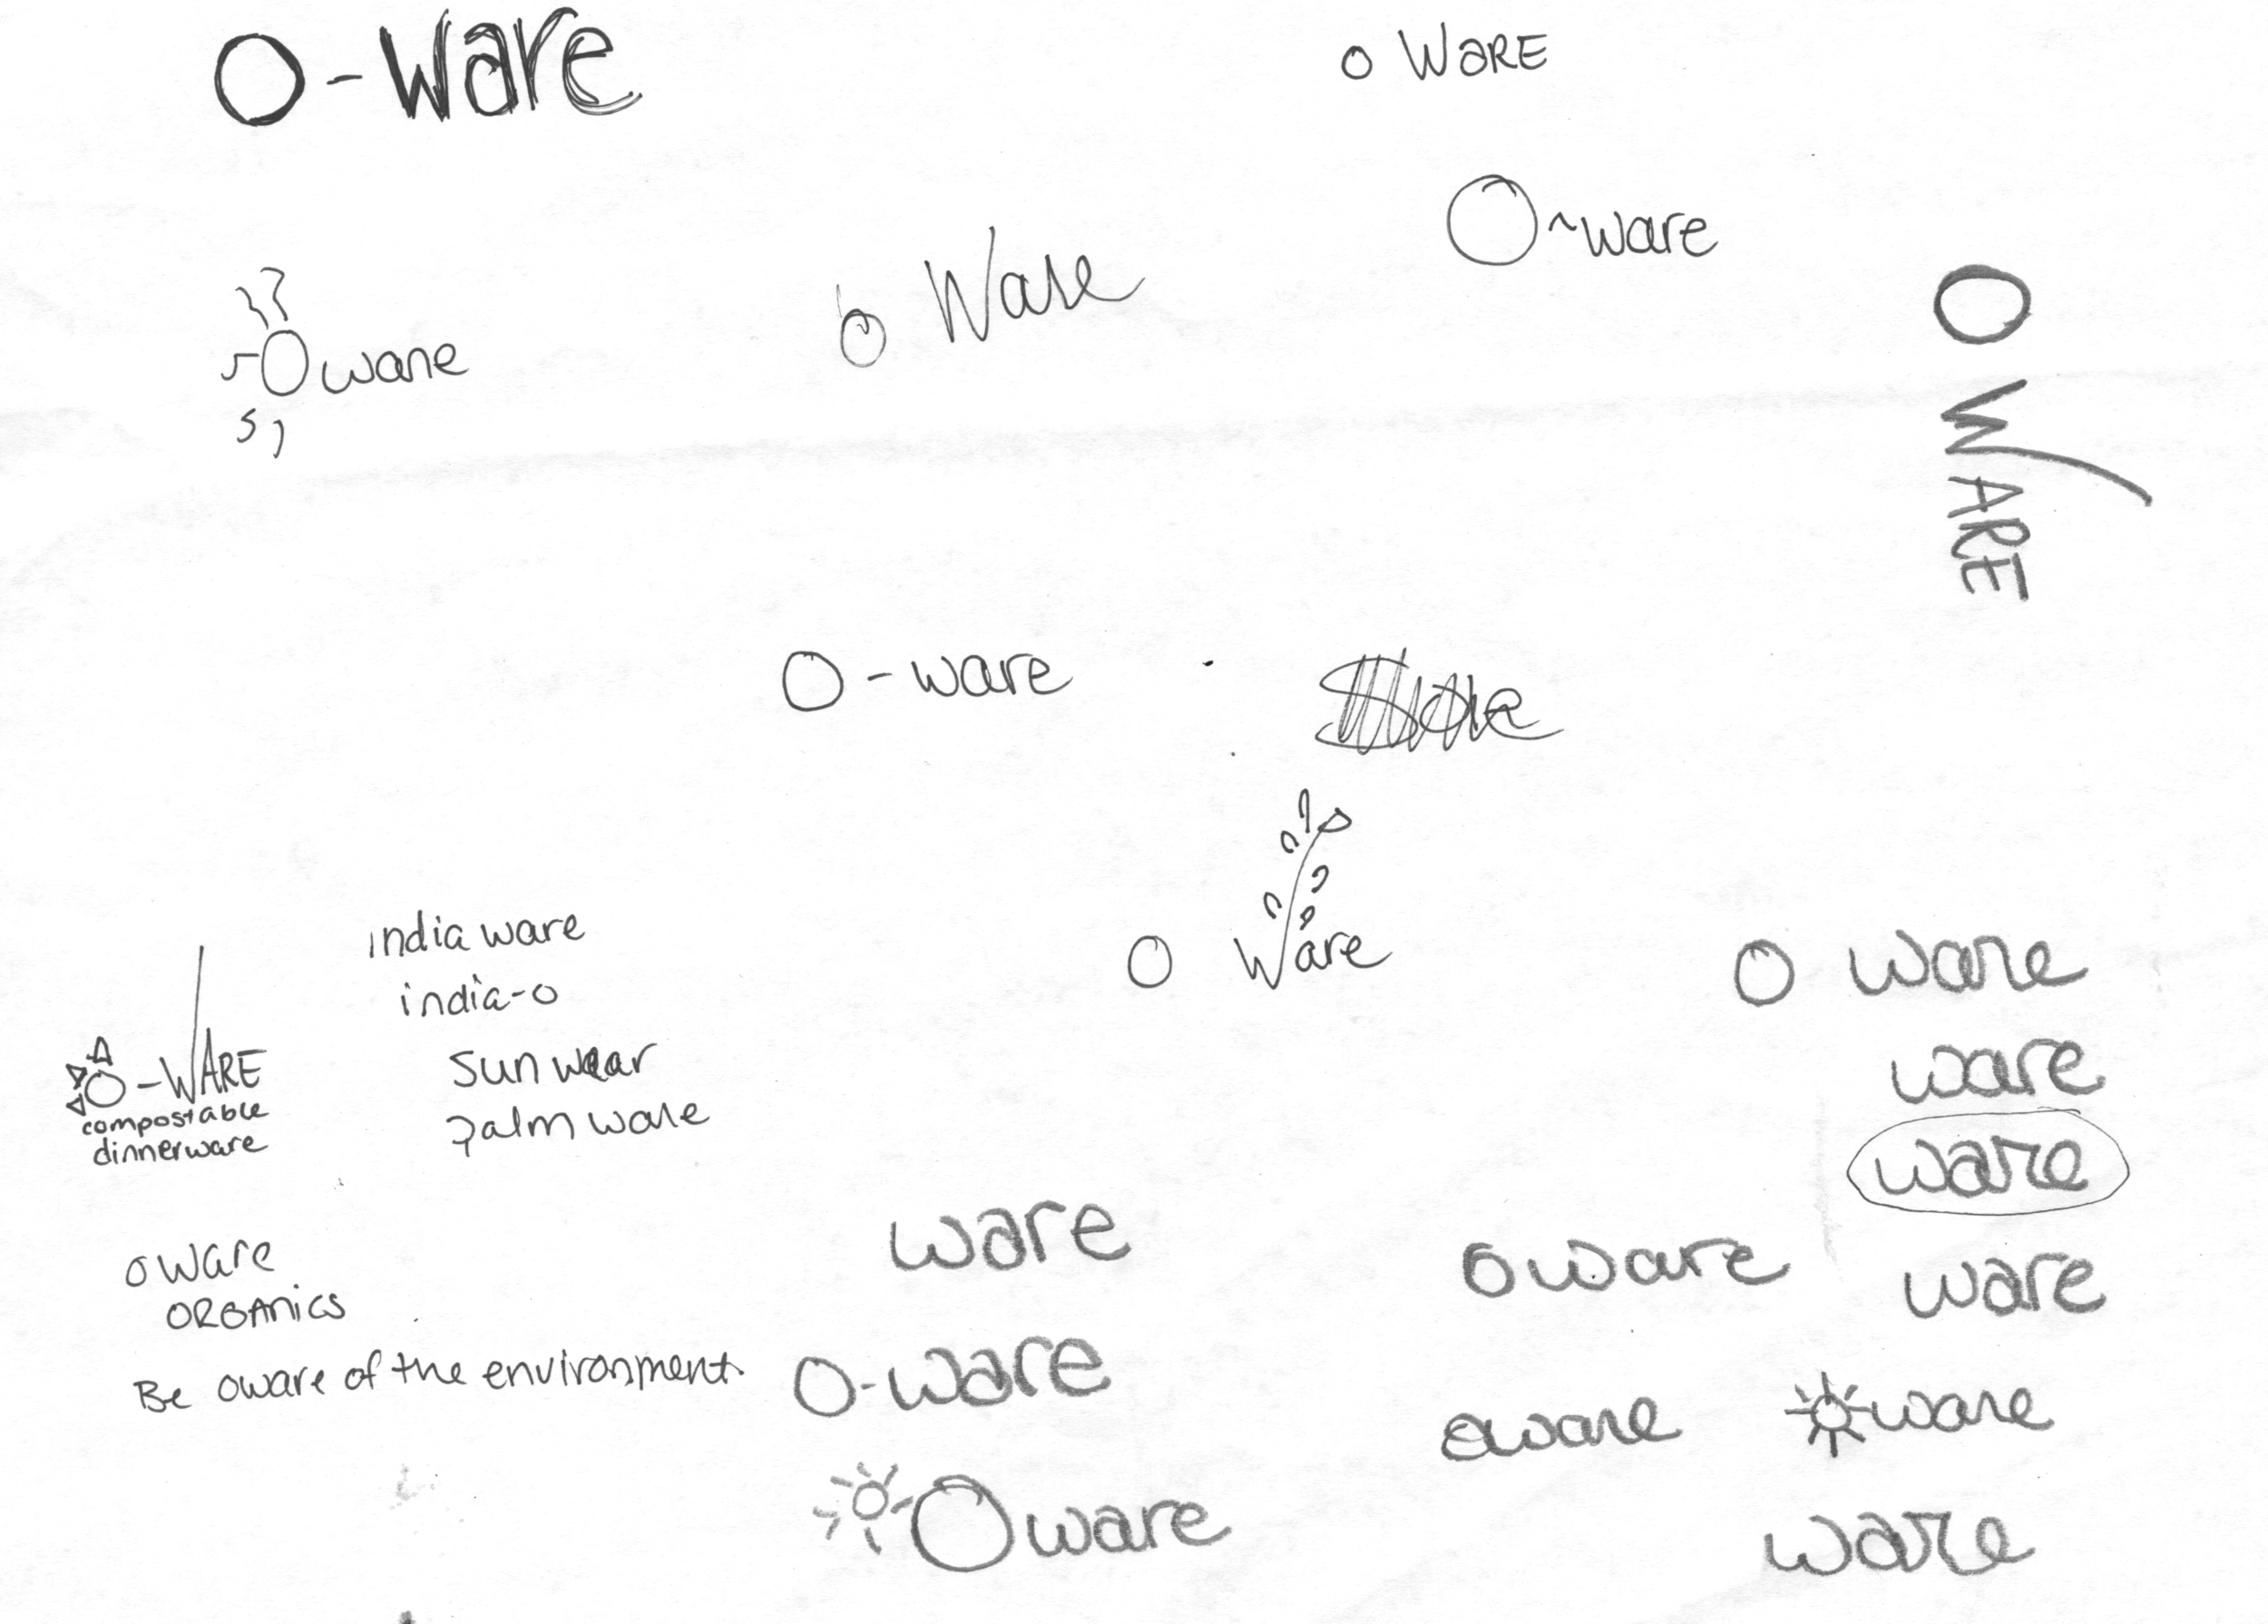 O-Ware
o WARE
O~ware
Oware
o Ware
O WARE
O-ware
O Ware
india ware
india-o
sun wear
palm ware
O-WARE
compostable
dinnerware
O ware
ware
ware
ware
oware
ware
oware
ORGANICS
Be oware of the environment.
O-ware
oware
oware
Oware
ware